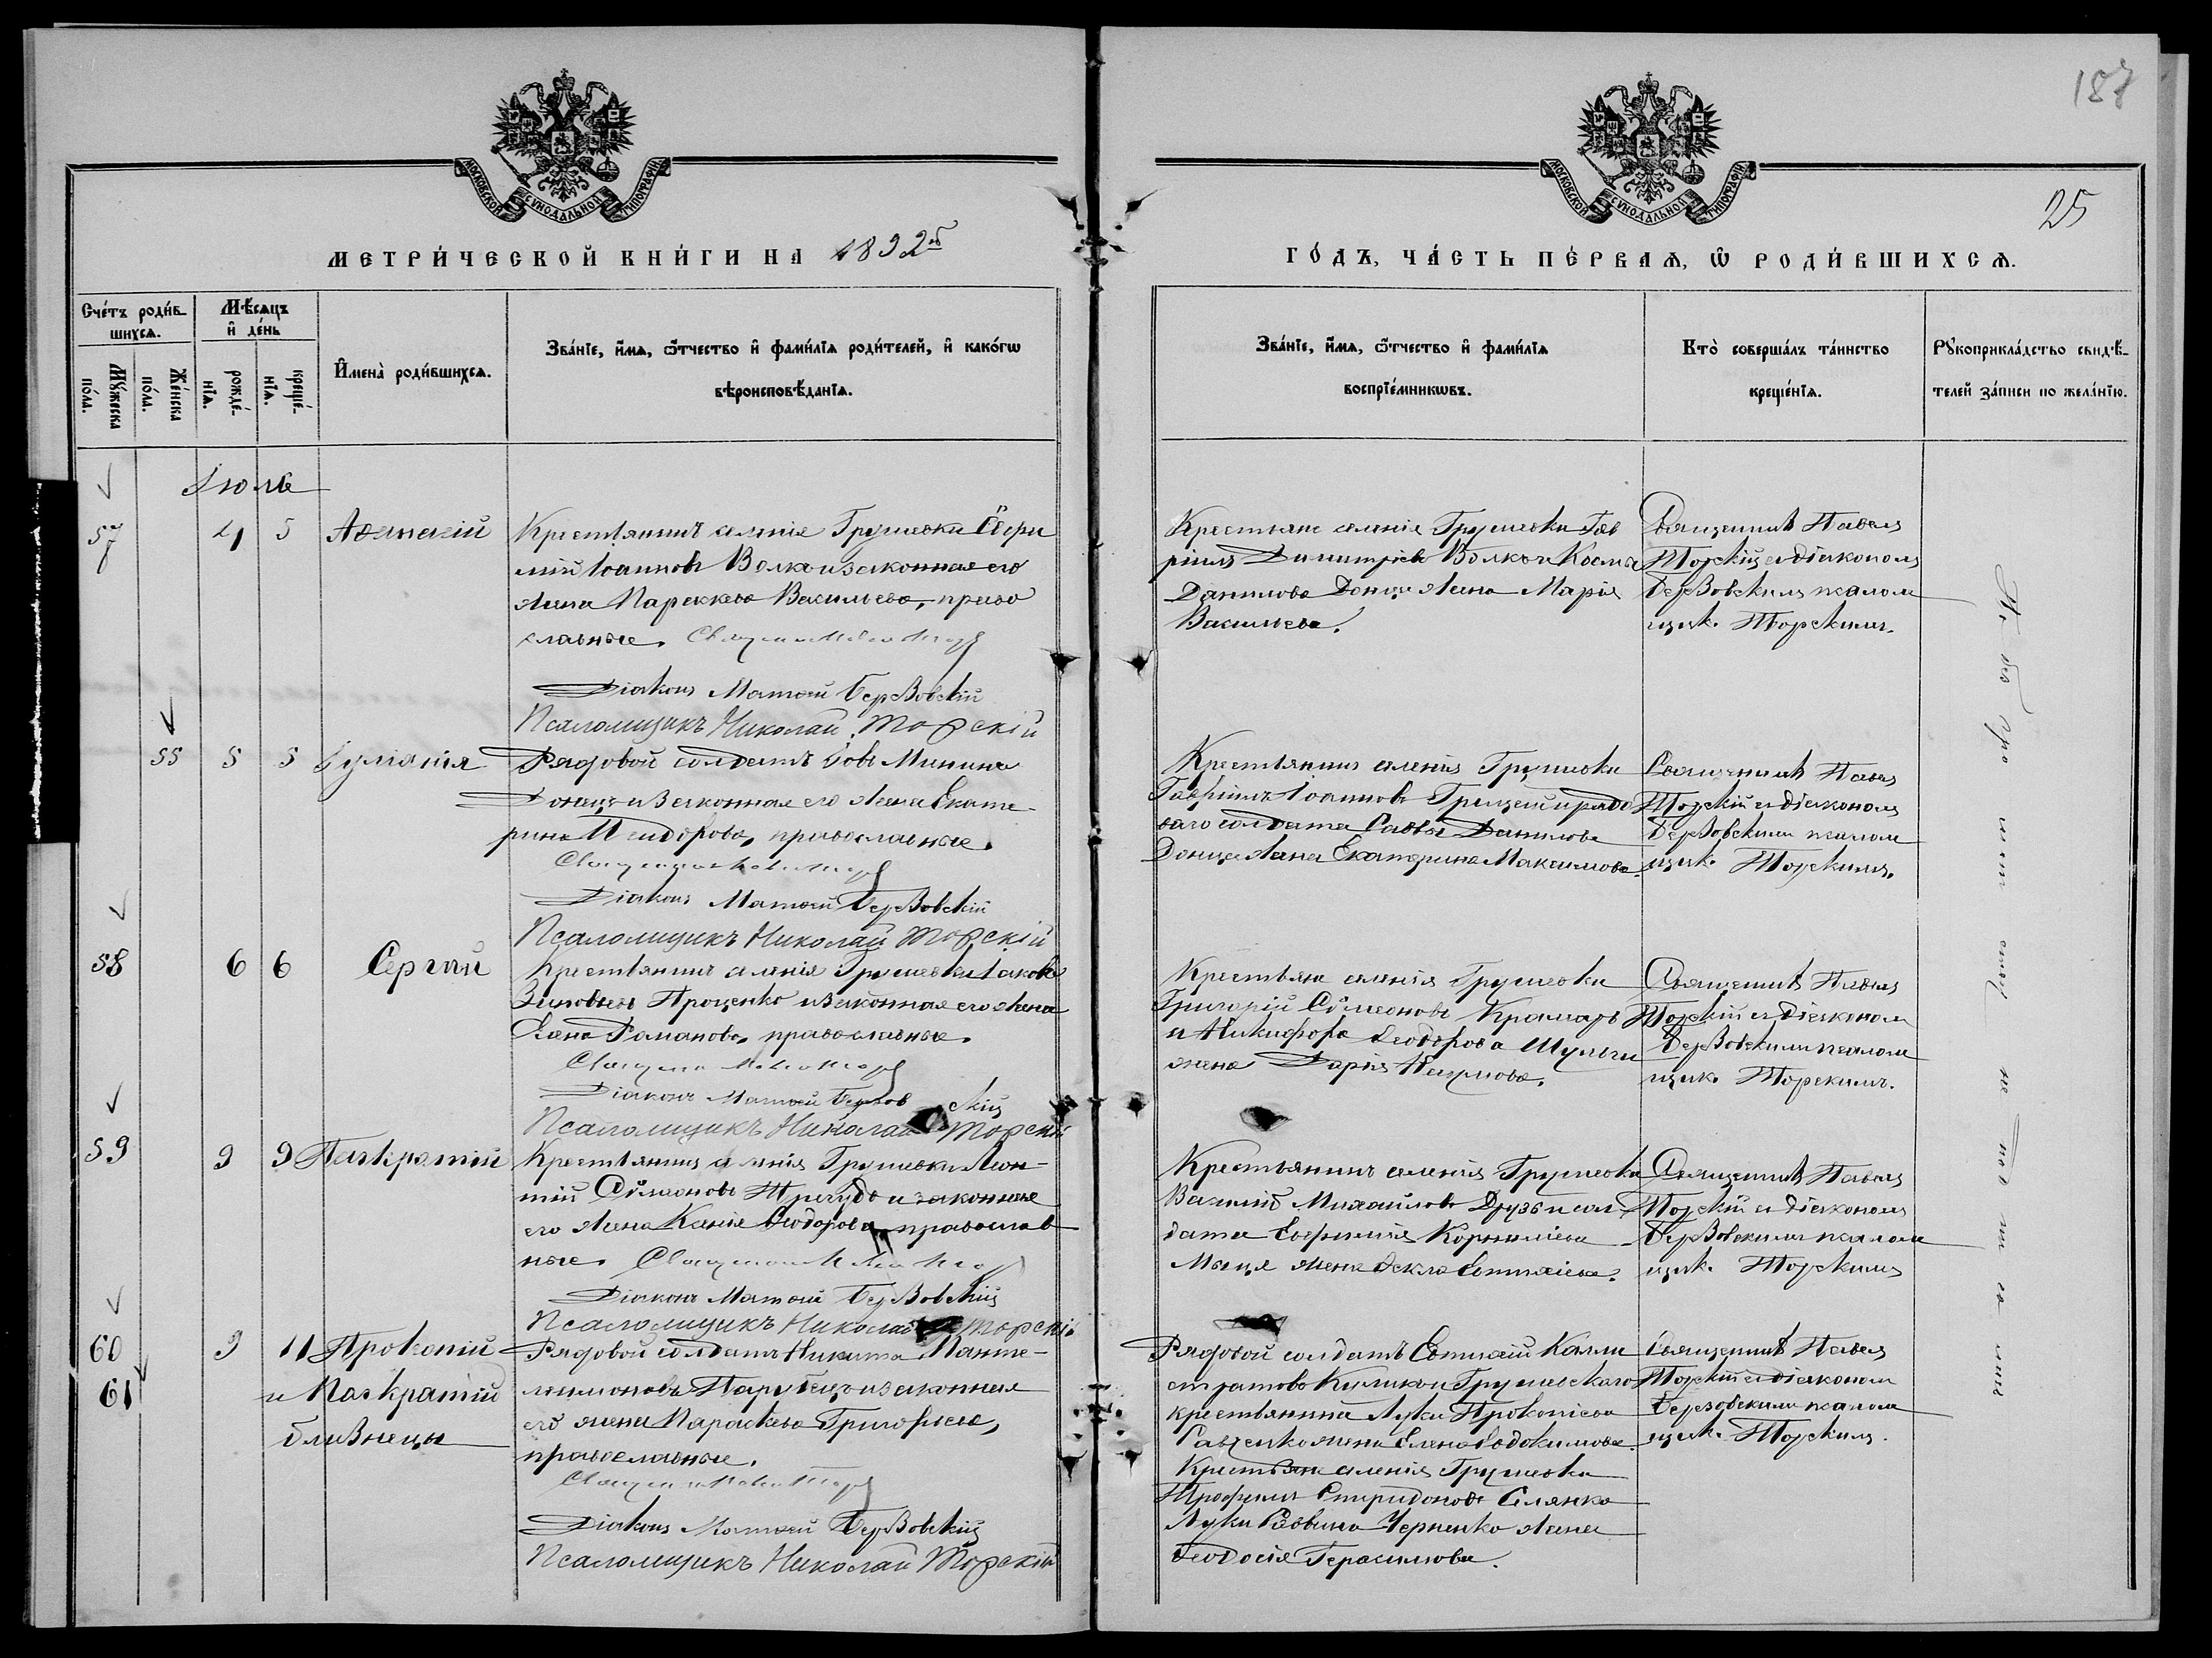 187
25
МОСКОВСКОЙ СѴНОДАЛЬНОЙ ТИПОГРАФІИ
МОСКОВСКОЙ СѴНОДАЛЬНОЙ ТИПОГРАФІИ
МЕТРИ́ЧЕСКОЙ КНИ́ГИ НА 1892й
ГО́ДЪ, ЧА́СТЬ ПЕ́РВАѦ, Ѡ РОДИ́ВШИХСѦ.
Сче́тъ роди́в-
шихсѧ.
Мꙋ́жеска
по́ла.
Же́нска
по́ла.
Мѣ́сѧцъ
и҆ де́нь
рожде́-
нїѧ.
креще́-
нїѧ.
И҆мена̀ роди́вшихсѧ.
Зва́нїе, и҆́мѧ, ѻ҆́тчество и҆ фами́лїѧ роди́телей, и҆ како́гѡ
вѣроисповѣ́данїѧ.
Зва́нїе, и҆́мѧ, ѻ҆́тчество и҆ фами́лїѧ
воспрїе́мникѡвъ.
Кто̀ соверша́лъ та́инство
креще́нїѧ.
Рꙋкоприкла́дство свидѣ́-
телей за́писи по жела́нїю.
Іюль
57 4 5 Аѳанасій
Крестьянинъ селенія Грушевки
Іоанновъ Волкъ и законная его
жена Параскева Васильева, право
славные.
Діаконъ Матѳей Березовскій
Псаломщикъ Николай Торскій
Крестьяне селенія Грушевки Гав
ріилъ Димитріевъ Волкъ и Космы
Данилова Донца жена Марія
Васильева.
Священникъ Павелъ
Торскій съ діакономъ
Березовскимъ и псалом
щик. Торскимъ.
55 5 5 Іуліанія
Рядовой солдатъ Іовъ Мининъ
Донецъ и законная его жена Екате-
рина православные.
Діаконъ Матѳей Березовскій
Псаломщикъ Николай Торскій
Крестьянинъ селенія Грушевки
Гавріилъ Іоанновъ и рядо
ваго солдата Саввы Данилова
Донца жена Екатерина Максимова.
Священникъ Павелъ
Торскій съ діакономъ
Березовскимъ и псалом
щик. Торскимъ.
58 6 6 Сергій
Крестьянинъ селенія Грушевки Іаковъ
Зиновьевъ Проценко и законная его жена
Елена Романова, православные.
Діаконъ Матѳей Березовскій
Псаломщикъ Николай Торскій
Крестьяне селенія Грушевки
Григорій Сѵмеоновъ Крамаръ
и Никифора Ѳеодорова Шульги
жена Дарія Наумова.
Священникъ Павелъ
Торскій съ діакономъ
Березовскимъ и псалом
щик. Торскимъ.
59 9 9 Панкратій
Крестьянинъ селенія Грушевки Леон-
тій Сѵмеоновъ и законная
его жена Ксенія Ѳеодорова, православ
ные.
Діаконъ Матѳей Березовскій
Псаломщикъ Николай Торскій
Крестьянинъ селенія Грушевки
Василій Михайловъ Друзь и сол
дата Евфимія Корниліева
жена Ѳекла Евтихіева.
Священникъ Павелъ
Торскій съ діакономъ
Березовскимъ и псалом
щик. Торскимъ
60 9 11 Прокопій
61 и Панкратій
близнецы
Рядовой солдатъ Никита Панте-
леимоновъ Парубецъ и законная
его жена Параскева Григорьева,
православные.
Діаконъ Матѳей Березовскій
Псаломщикъ Николай Торскій
Рядовой солдатъ Евтихій Калли
стратовъ Куликъ и Грушевскаго
крестьянина Луки Прокопіева
Савченко жена Елена Евдокимова.
Крестьяне селенія Грушевки
Трофимъ Спиридоновъ
Луки Саввина Черненко жена
Ѳеодосія Герасимова.
Священникъ Павелъ
Торскій съ діакономъ
Березовскимъ и псалом
щик. Торскимъ.